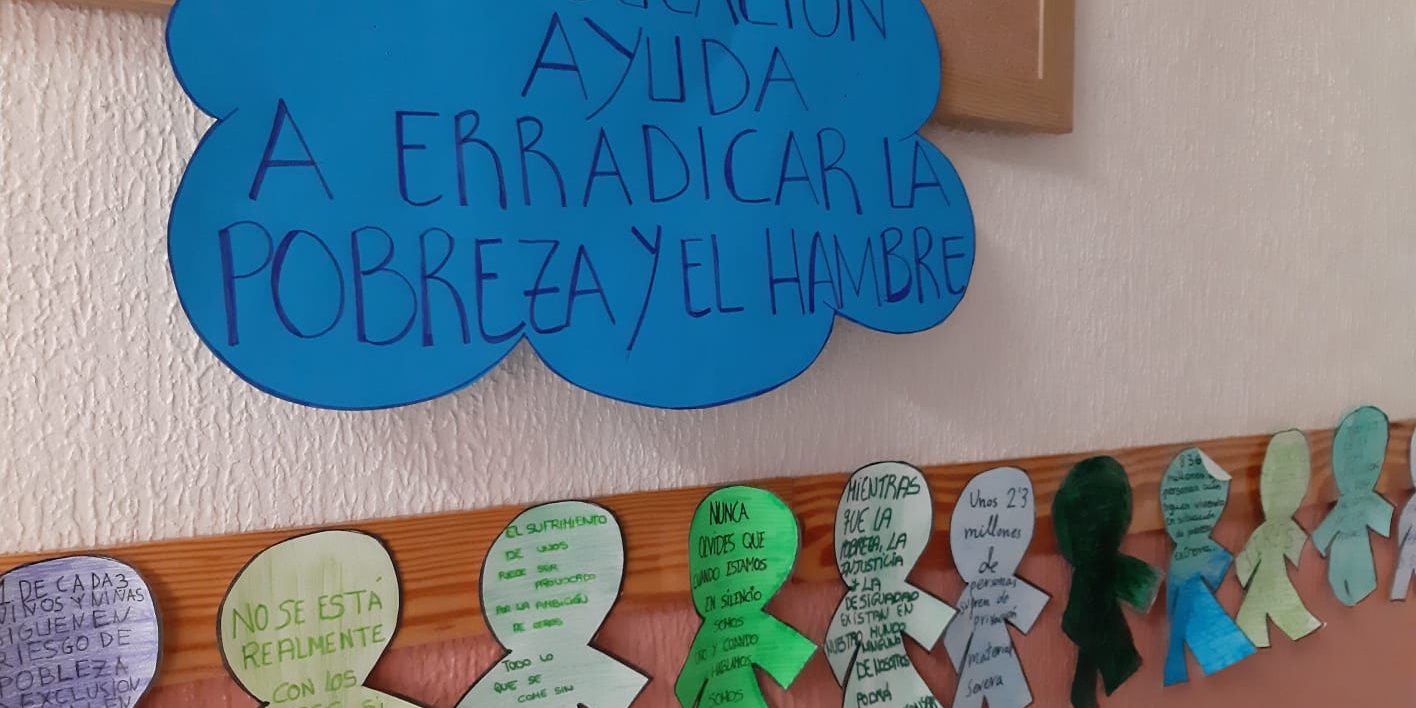 AYUDA
A ERRADICAR LA
POBREZA Y EL HAMBRE
1 DE CADA 3
NIÑOS Y NIÑAS
SIGUEN EN
RIESGO DE
POBLEZA
EXCLUSIÓN
NO SE ESTÁ
REALMENTE
CON LOS
EL SUFRIMIENTO
DE UNOS
PUEDE SER
PROVOCADO
POR LA AMBICIÓN
DE OTROS
TODO LO
QUE SE
COME SIN
NUNCA
OLVIDES QUE
CUANDO ESTAMOS
EN SILENCIO
SOMOS
UNO Y CUANDO
HABLAMOS
SOMOS
MIENTRAS
QUE LA
POBREZA, LA
INJUSTICIA
Y LA
DESIGUALDAD
EXISTAN EN
NUESTRO MUNDO
NINGUNO
DE NOSOTROS
PODRÁ
Unos 2'3
millones
de
personas
sufren de
privación
material
severa
836
millones
personas aún
siguen viviendo
en situación
de pobreza
extrema